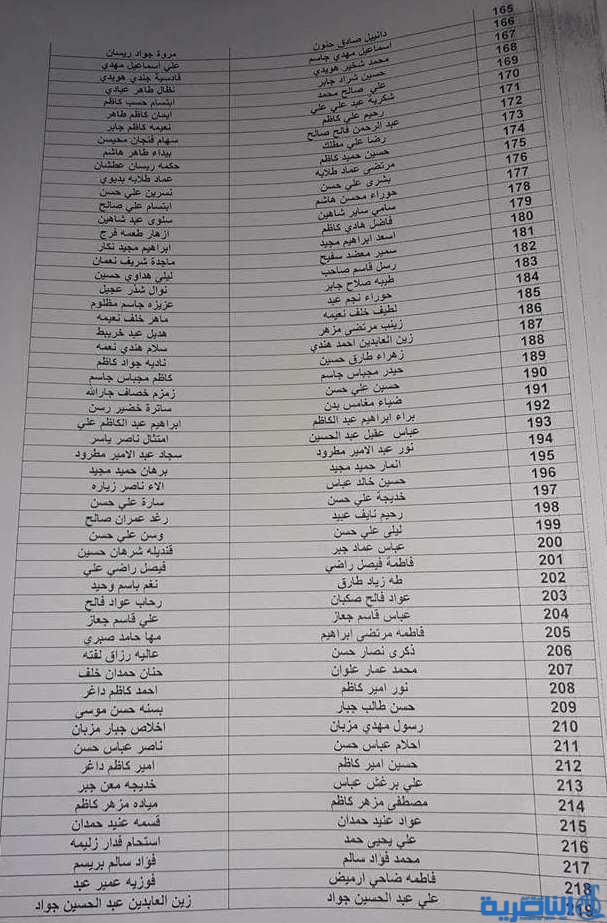 165 دانييل صادق حنون مروة جواد ريسان
166 اسماعيل مهدي جاسم علي اسماعيل مهدي
167 محمد شخير هويدي قادسية جندي هويدي
168 حسين شراد جابر نظال طاهر عبادي
169 علي صالح محمد ابتسام حسب كاظم
170 شكرية عبد علي علي ايمان كاظم طاهر
171 رحيم علي كاظم نعيمه كاظم جابر
172 عبد الرحمن فالح صالح سهام فنجان محيسن
173 رضا علي مطلك بيداء طاهر هاشم
174 حسين حميد كاظم حكمه ريسان عطشان
175 مرتضى عماد طلابه عماد طلابه بديوي
176 بشرى علي حسن نسرين علي حسن
177 حوراء محسن هاشم ابتسام علي صالح
178 سامي ساير شاهين سلوى عبد شاهين
179 فاضل هادي كاظم ازهار طعسه فرج
180 اسعد ابراهيم مجيد ابراهيم مجيد نكار
181 سمير معضد سفيح ماجدة شريف نعمان
182 رسل قاسم صاحب ليلى هداوي حسين
183 طيبه صلاح جابر نوال شذر عجيل
184 حوراء نجم عبد عزيزه جاسم مظلوم
185 لطيف خلف نعيمه ماهر خلف نعيمه
186 زينب مرتضى مزهر هديل عبد خريبط
187 زين العابدين احمد هندي سلام هندي نعمه
188 زهراء طارق حسين ناديه جواد كاظم
189 حيدر مجباس جاسم كاظم مجباس جاسم
190 حسين علي حسن زمزم خصاف جارالله
191 ضياء مغامس بدن ساترة خضير رسن
192 براء ابراهيم عبد الكاظم ابراهيم عبد الكاظم علي
193 عباس عقيل عبد الحسين امتثال ناصر ياسر
194 نور عبد الامير مطرود سجاد عبد الامير مطرود
195 انمار حميد مجيد برهان حميد مجيد
196 حسين خالد عباس الاء ناصر زياره
197 خديجة علي حسن سارة علي حسن
198 رحيم نايف عبيد رغد عمران صالح
199 ليلى علي حسن وسن علي حسن
200 عباس عماد جبر قنديله شرهان حسين
201 فاطمة فيصل راضي فيصل راضي علي
202 طه زياد طارق نغم باسم وحيد
203 عواد فالح صكبان رحاب عواد فالح
204 عباس قاسم جعاز علي قاسم جعاز
205 فاطمه مرتضى ابراهيم مها حامد صبري
206 ذكرى نصار حسن عاليه رزاق لفته
207 محمد عمار علوان حنان حمدان خلف
208 نور امير كاظم احمد كاظم داغر
209 حسن طالب جبار بسنه حسن موسى
210 رسول مهدي مزبان اخلاص جبار مزبان
211 احلام عباس حسن ناصر عباس حسن
212 حسين امير كاظم امير كاظم داغر
213 علي برغش عباس خديجه معن جبر
214 مصطفى مزهر كاظم مياده مزهر كاظم
215 عواد عنيد حمدان قسمه عنيد حمدان
216 علي يحيى حمد استحام فدار زليمه
217 محمد فؤاد سالم فؤاد سالم بريسم
218 فاطمه ضاحي ارميض فوزيه عمير عبد
219 علي عبد الحسين جواد زين العابدين عبد الحسين جواد
الناصرية